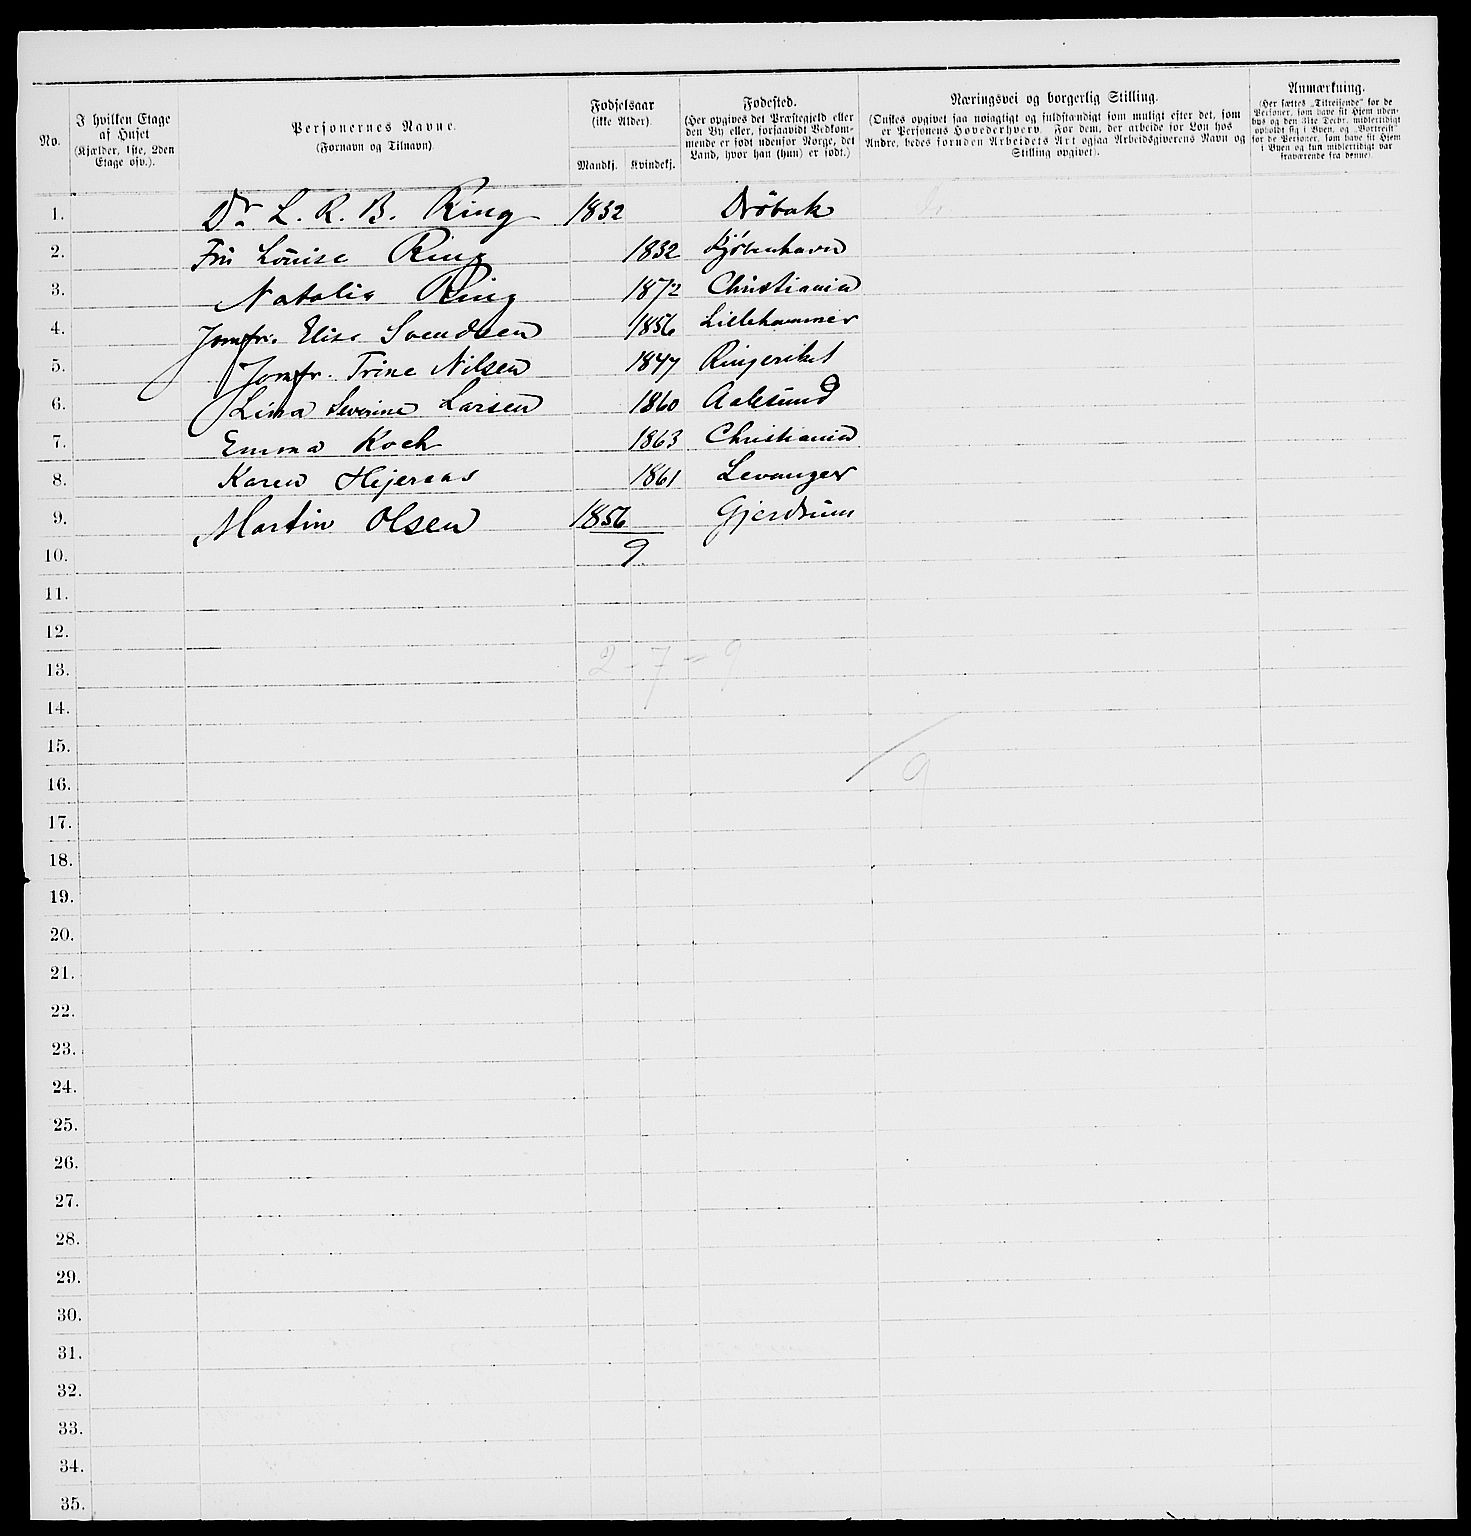 No.
I hvilken Etage af Huset
(Kjælder, 1ste, 2den Etage osv.).
Personernes Navne.
(Fornavn og Tilnavn)
Fødselsaar
(ikke Alder).
Mandkj. Kvindekj.
Fødested.
(Her opgives det Præstegjeld eller
den By eller, forsaavidt Vedkom-
mende er født udenfor Norge, det
Land, hvor han (hun) er født.)
Næringsvei og borgerlig Stilling.
(Ønskes opgivet saa nøiagtigt og fuldstændigt som muligt efter det, som
er Personens Hovederhverv. For dem, der arbeide for Løn hos
Andre, bedes foruden Arbeidets Art ogsaa Arbeidsgiverens Navn og
Stilling opgivet).
Anmærkning.
(Her sættes „Tilreisende" for de
Personer, som have sit Hjem uden-
bys og den 31te Decbr. midlertidigt
opholdt sig i Byen, og „Bortreist"
for de Personer, som have sit Hjem
i Byen og kun midlertidigt var
fraværende fra denne).
1. Dr. L. R. B. Ring 1832 Dröbak
2. Frü Loüise Ring 1832 Kjøbenhavn
3. Natalia Ring 1872 Christiania
4. Jomfr. Elise Svendsen 1856 Lillehammer
5. Jomfr. Trine Nilsen 1847 Ringeriket
6. Lina Severine Larsen 1860 Aalesund
7. Emma Koch 1863 Christiania
8. Karen Hejeraas 1861 Levanger
9. Martin Olsen 1856 Gjerdrüm
10. 9
11.
12.
13. 2 - 7 = 9
14.
15.
16. 9
17.
18.
19.
20.
21.
22.
23.
24.
25.
26.
27.
28.
29.
30.
31.
32.
33.
34.
35.